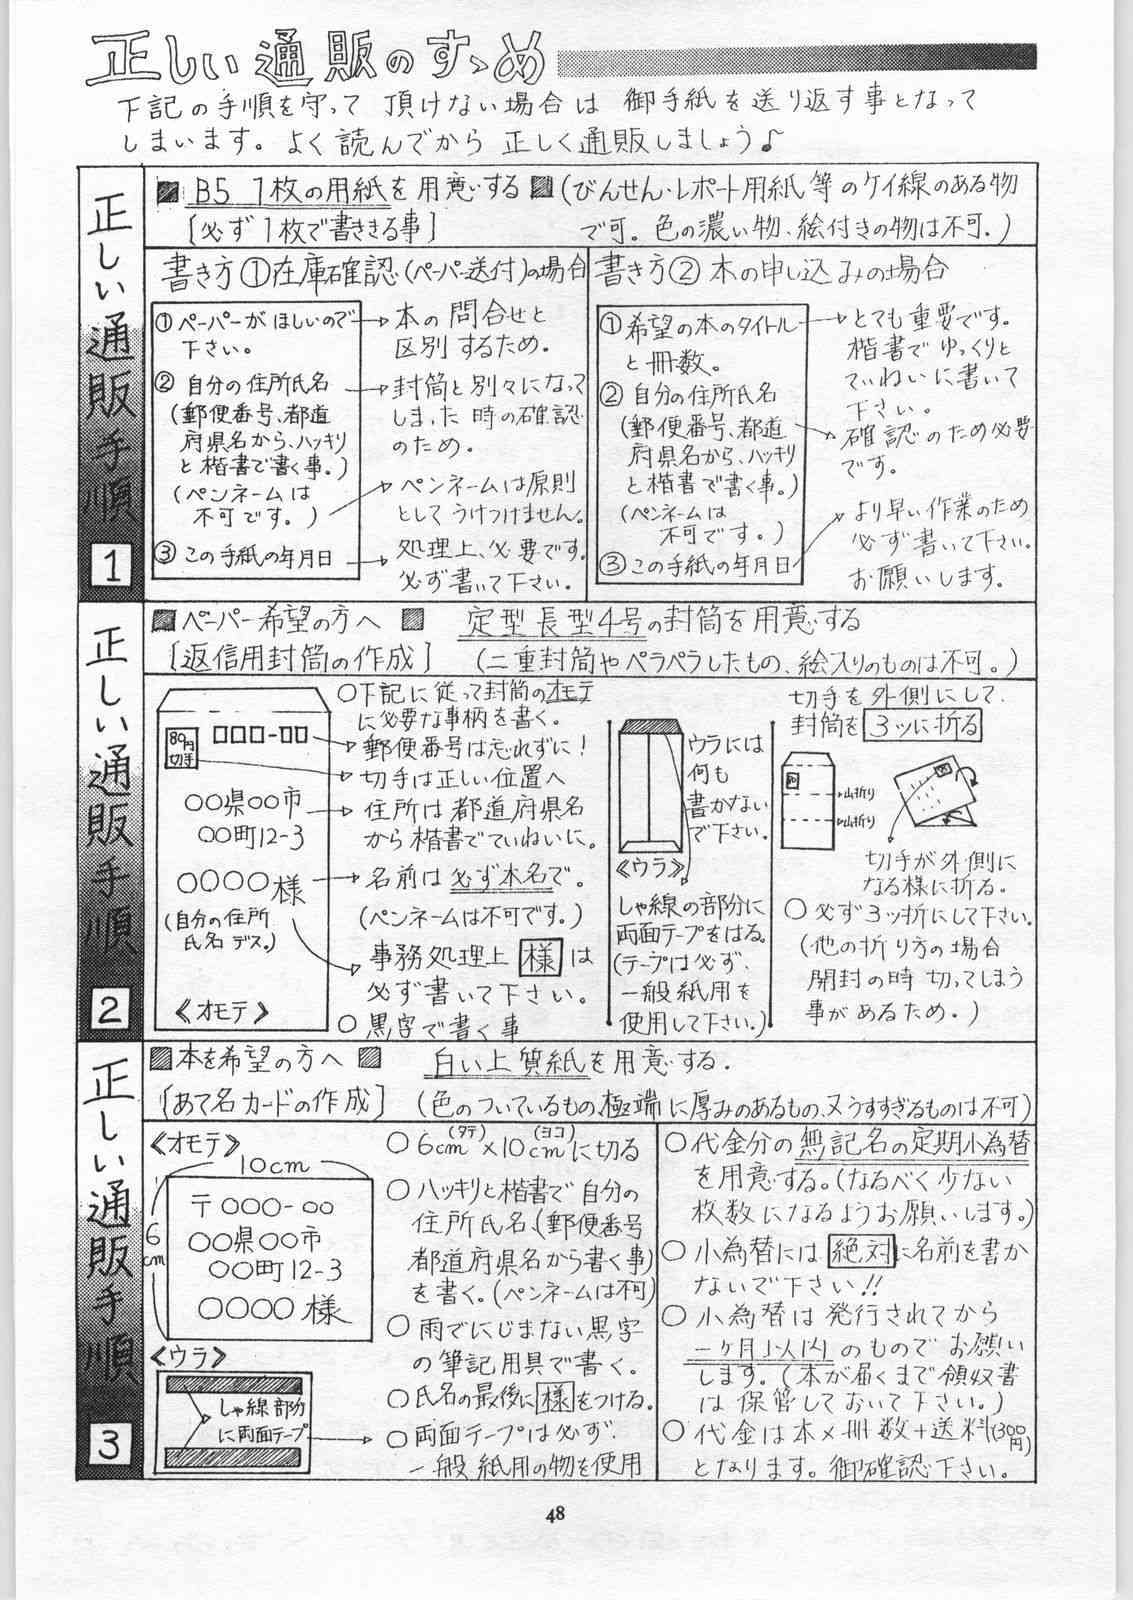 正しい通販のすゝめ
下記の手順を守って頂けない場合は御手紙を送り返す事となって
しまいます。よく読んでから正しく通販しましょう♪
正しい通販手順
1
B5 1枚の用紙を用意する(びんせん・レポート用紙等のケイ線のある物
[必ず1枚で書ききる事] で可。色の濃い物、絵付きの物は不可.)
書き方①在庫確認(ペーパー送付)の場合
①ペーパーがほしいので
下さい。
②自分の住所氏名
(郵便番号、都道
府県名から、ハッキリ
と楷書で書く事。)
(ペンネームは
不可です。)
③この手紙の年月日
本の問合せと
区別するため.
封筒と別々になって
しまった時の確認
のため.
ペンネームは原則
としてうけつけません。
処理上、必要です。
必ず書いて下さい.
書き方②本の申し込みの場合
①希望の本のタイトル
と冊数。
②自分の住所氏名
(郵便番号、都道
府県名から、ハッキリ
と楷書で書く事。)
(ペンネームは
不可です。)
③この手紙の年月日
とても重要です。
楷書でゆっくりと
ていねいに書いて
下さい。
確認のため必要
です。
より早い作業のため
必ず書いて下さい.
お願いします。
正しい通販手順
2
ペーパー希望の方へ 定型長型4号の封筒を用意する
[返信用封筒の作成] (二重封筒やペラペラしたもの、絵入りのものは不可。)
80円
切手
□□□-□□
○○県○○市
○○町12-3
○○○○様
(自分の住所
氏名デス。)
《オモテ》
○下記に従って封筒のオモテ
に必要な事柄を書く。
郵便番号は忘れずに!
切手は正しい位置へ
住所は都道府県名
から楷書でていねいに。
名前は必ず本名で。
(ペンネームは不可です。)
事務処理上様は
必ず書いて下さい。
○黒字で書く事
ウラには
何も
書かない
で下さい。
《ウラ》
しゃ線の部分に
両面テープをはる。
(テープは必ず、
一般紙用を
使用して下さい。)
切手を外側にして、
封筒を3ツに折る
山折り
山折り
切手が外側に
なる様に折る.
○必ず3ッ折にして下さい.
(他の折り方の場合
開封の時切ってしまう
事があるため.)
正しい通販手順
3
本を希望の方へ 白い上質紙を用意する.
[あて名カードの作成] (色のついているもの、極端に厚みのあるもの、又うすすぎるものは不可)
《オモテ》
10cm
6cm
〒○○○-○○
○○県○○市
○○町12-3
○○○○様
《ウラ》
しゃ線部分
に両面テープ
○6cm(タテ)×10cm(ヨコ)に切る
○ハッキリと楷書で自分の
住所氏名(郵便番号
都道府県名から書く事)
を書く。(ペンネームは不可)
○雨でにじまない黒字
の筆記用具で書く。
○氏名の最後に様をつける.
○両面テープは必ず、
一般紙用の物を使用
○代金分の無記名の定期小為替
を用意する。(なるべく少ない
枚数になるようお願いします。)
○小為替には絶対に名前を書か
ないで下さい!!
○小為替は発行されてから
一ヶ月以内のものでお願い
します。(本が届くまで領収書
は保管しておいて下さい。)
○代金は本×冊数+送料(300円)
となります。御確認下さい。
48